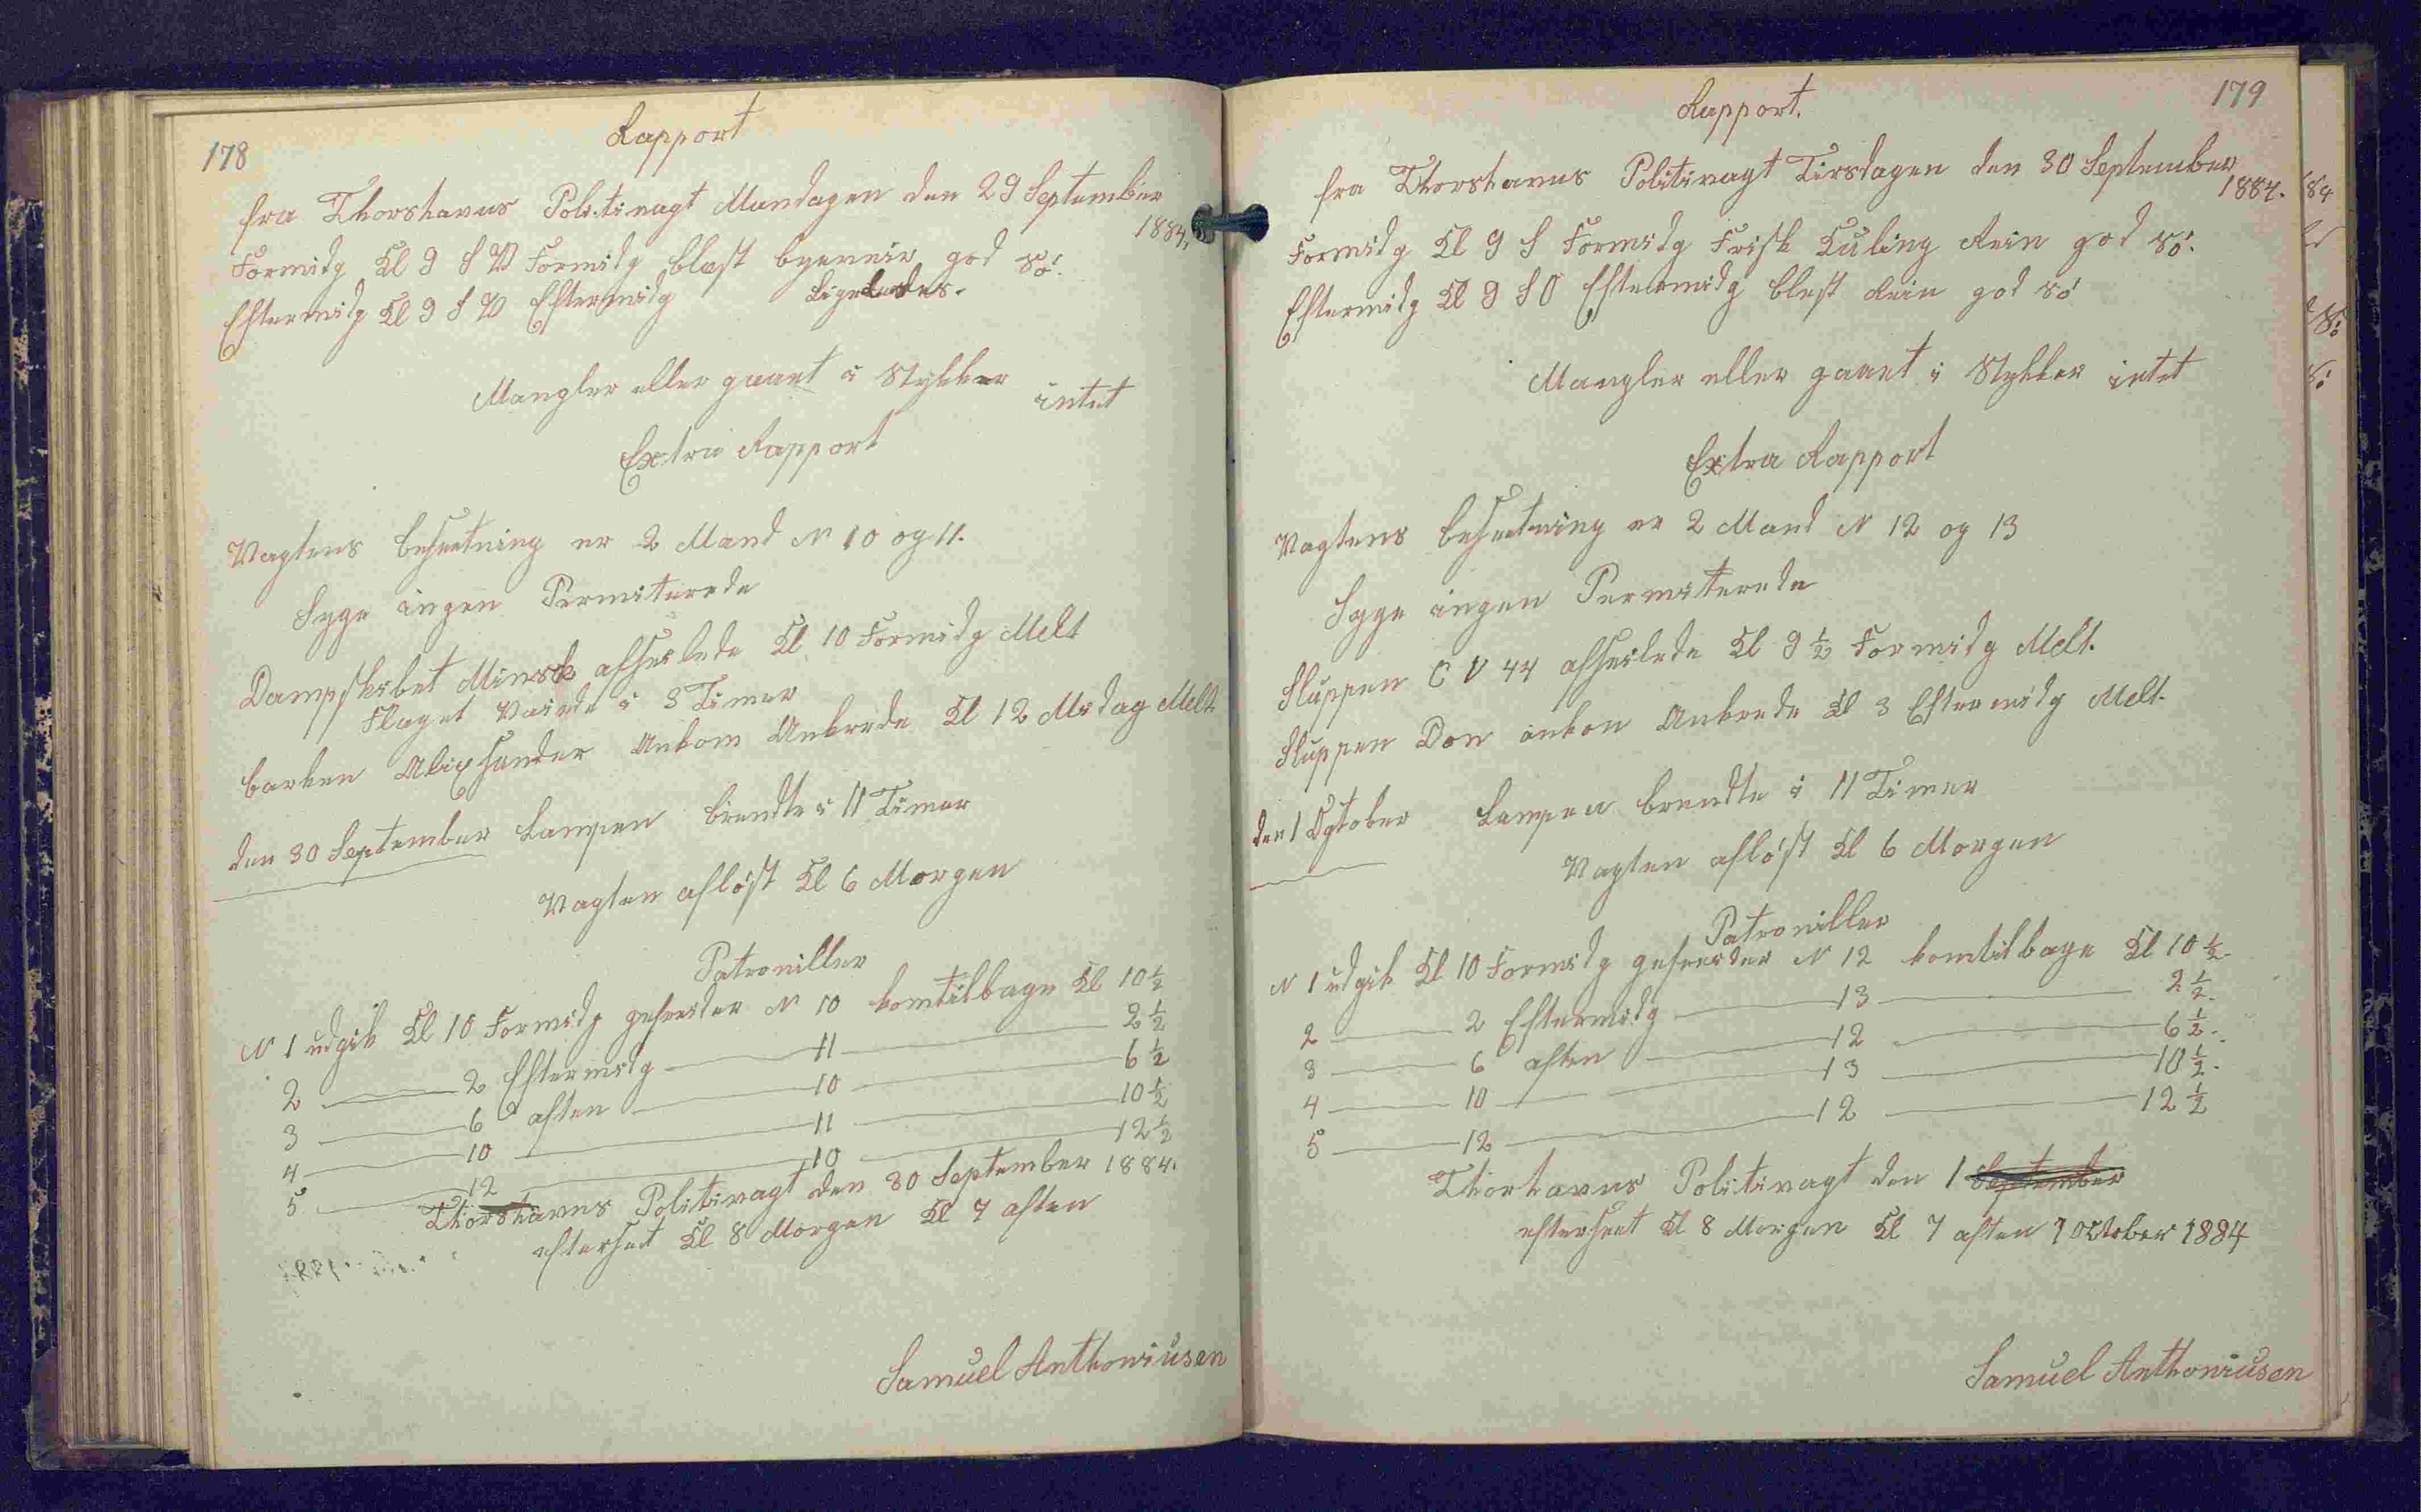 178
Rapport
fra Thorshavns Politivagt Mandagen den 29 September
1884,
Formidg Kl 9 S V Formidg blæst byeveir god Sö.
Eftermidg Kl 9 S V Eftermidg Ligeledes.
Mangler eller gaaet i Stykker intet
Extra Rapport
Vagtens besætning er 2 Mand N 10 og 11.
Syge ingen Permiterede
Dampskibet Minsk afseilede Kl 10 Formidg Melt
Flaget Vaiede i 3 Timer
barken Alixsander Ankom Ankrede Kl 12 Midag Melt
den 30 September Lampen brendte i 11 Timer
Vagten aflöst Kl 6 Morgen
Patroviller
N 1 udgik Kl 10 Formidg gefreider N 10 komtilbage Kl 10 1/2
2 — 2 Eftermidg — 11 — 2 1/2
3 — 6 aften — 10 — 6 1/2
4 — 10 — 11 — 10 1/2
5 — 12 — 10 — 12 1/2
Thorshavns Politivagt den 30 September 1884.
efterset Kl 8 Morgen Kl 7 aften
Samuel Anthoniusen
179
Rapport.
fra Thorshavns Politivagt Tirsdagen den 30 September
1884.
Formidg Kl 9 S Formidg Frisk Kuling Rein god Sö.
Eftermidg Kl 9 S O Eftermidg blest Rein god Sö
Mangler eller gaaet i Stykker intet
Extra Rapport
Vagtens besætning er 2 Mand N 12 og 13
Syge ingen Permiterede
Sluppen C V 44 afseilede Kl 9 1/2 Formidg Melt.
Sluppen Don ankon Ankrede Kl 3 Eftermidg Melt.
den 1 Ogtober Lampen brendte i 11 Timer
Vagten aflöst Kl 6 Morgen
Patroviller
N 1 udgik Kl 10 Formidg gefreider N 12 komtilbage Kl 10 1/2.
2 — 2 Eftermidg — 13 — 2 1/2.
3 — 6 aften — 12 — 6 1/2.
4 — 10 — 13 — 10 1/2.
5 — 12 — 12 — 12 1/2
Thorhavns Politivagt den 1 September
efterseet Kl 8 Morgen Kl 7 aften 1 October 1884
Samuel Anthoniusen